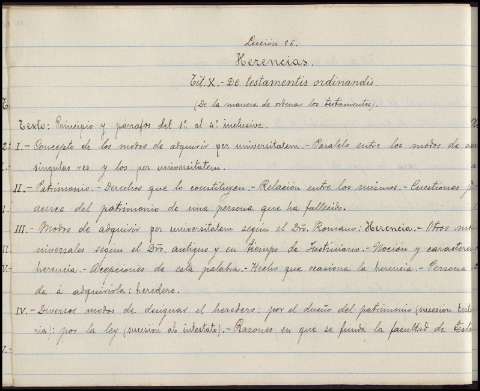 Lección 26.
Herencias.
Tít. X. - De testamentis ordinandis
(De la manera de ordenar los testamentos).
Texto: Principio y párrafos del 1º al 4º inclusive.
I. - Concepto de los modos de adquirir per universitatem. - Paralelo entre los modos de
singulas res y los per universitatem.
II. - Patrimonio. - Derechos que lo constituyen. - Relación entre los mismos. - Cuestiones
acerca del patrimonio de una persona que ha fallecido.
III. - Modos de adquirir per universitatem según el Dro. Romano: Herencia. - Otros
universales según el Dro. antiguo y en tiempo de Justiniano. - Noción y caracteres
herencia. - Acepciones de esta palabra. - Hecho que ocasiona la herencia. - Persona
da á adquirirla: heredero.
IV. - Diversos modos de designar el heredero: por el dueño del patrimonio (sucesion
ria); por la ley (sucesion ab intestato). - Razones en que se funda la facultad de